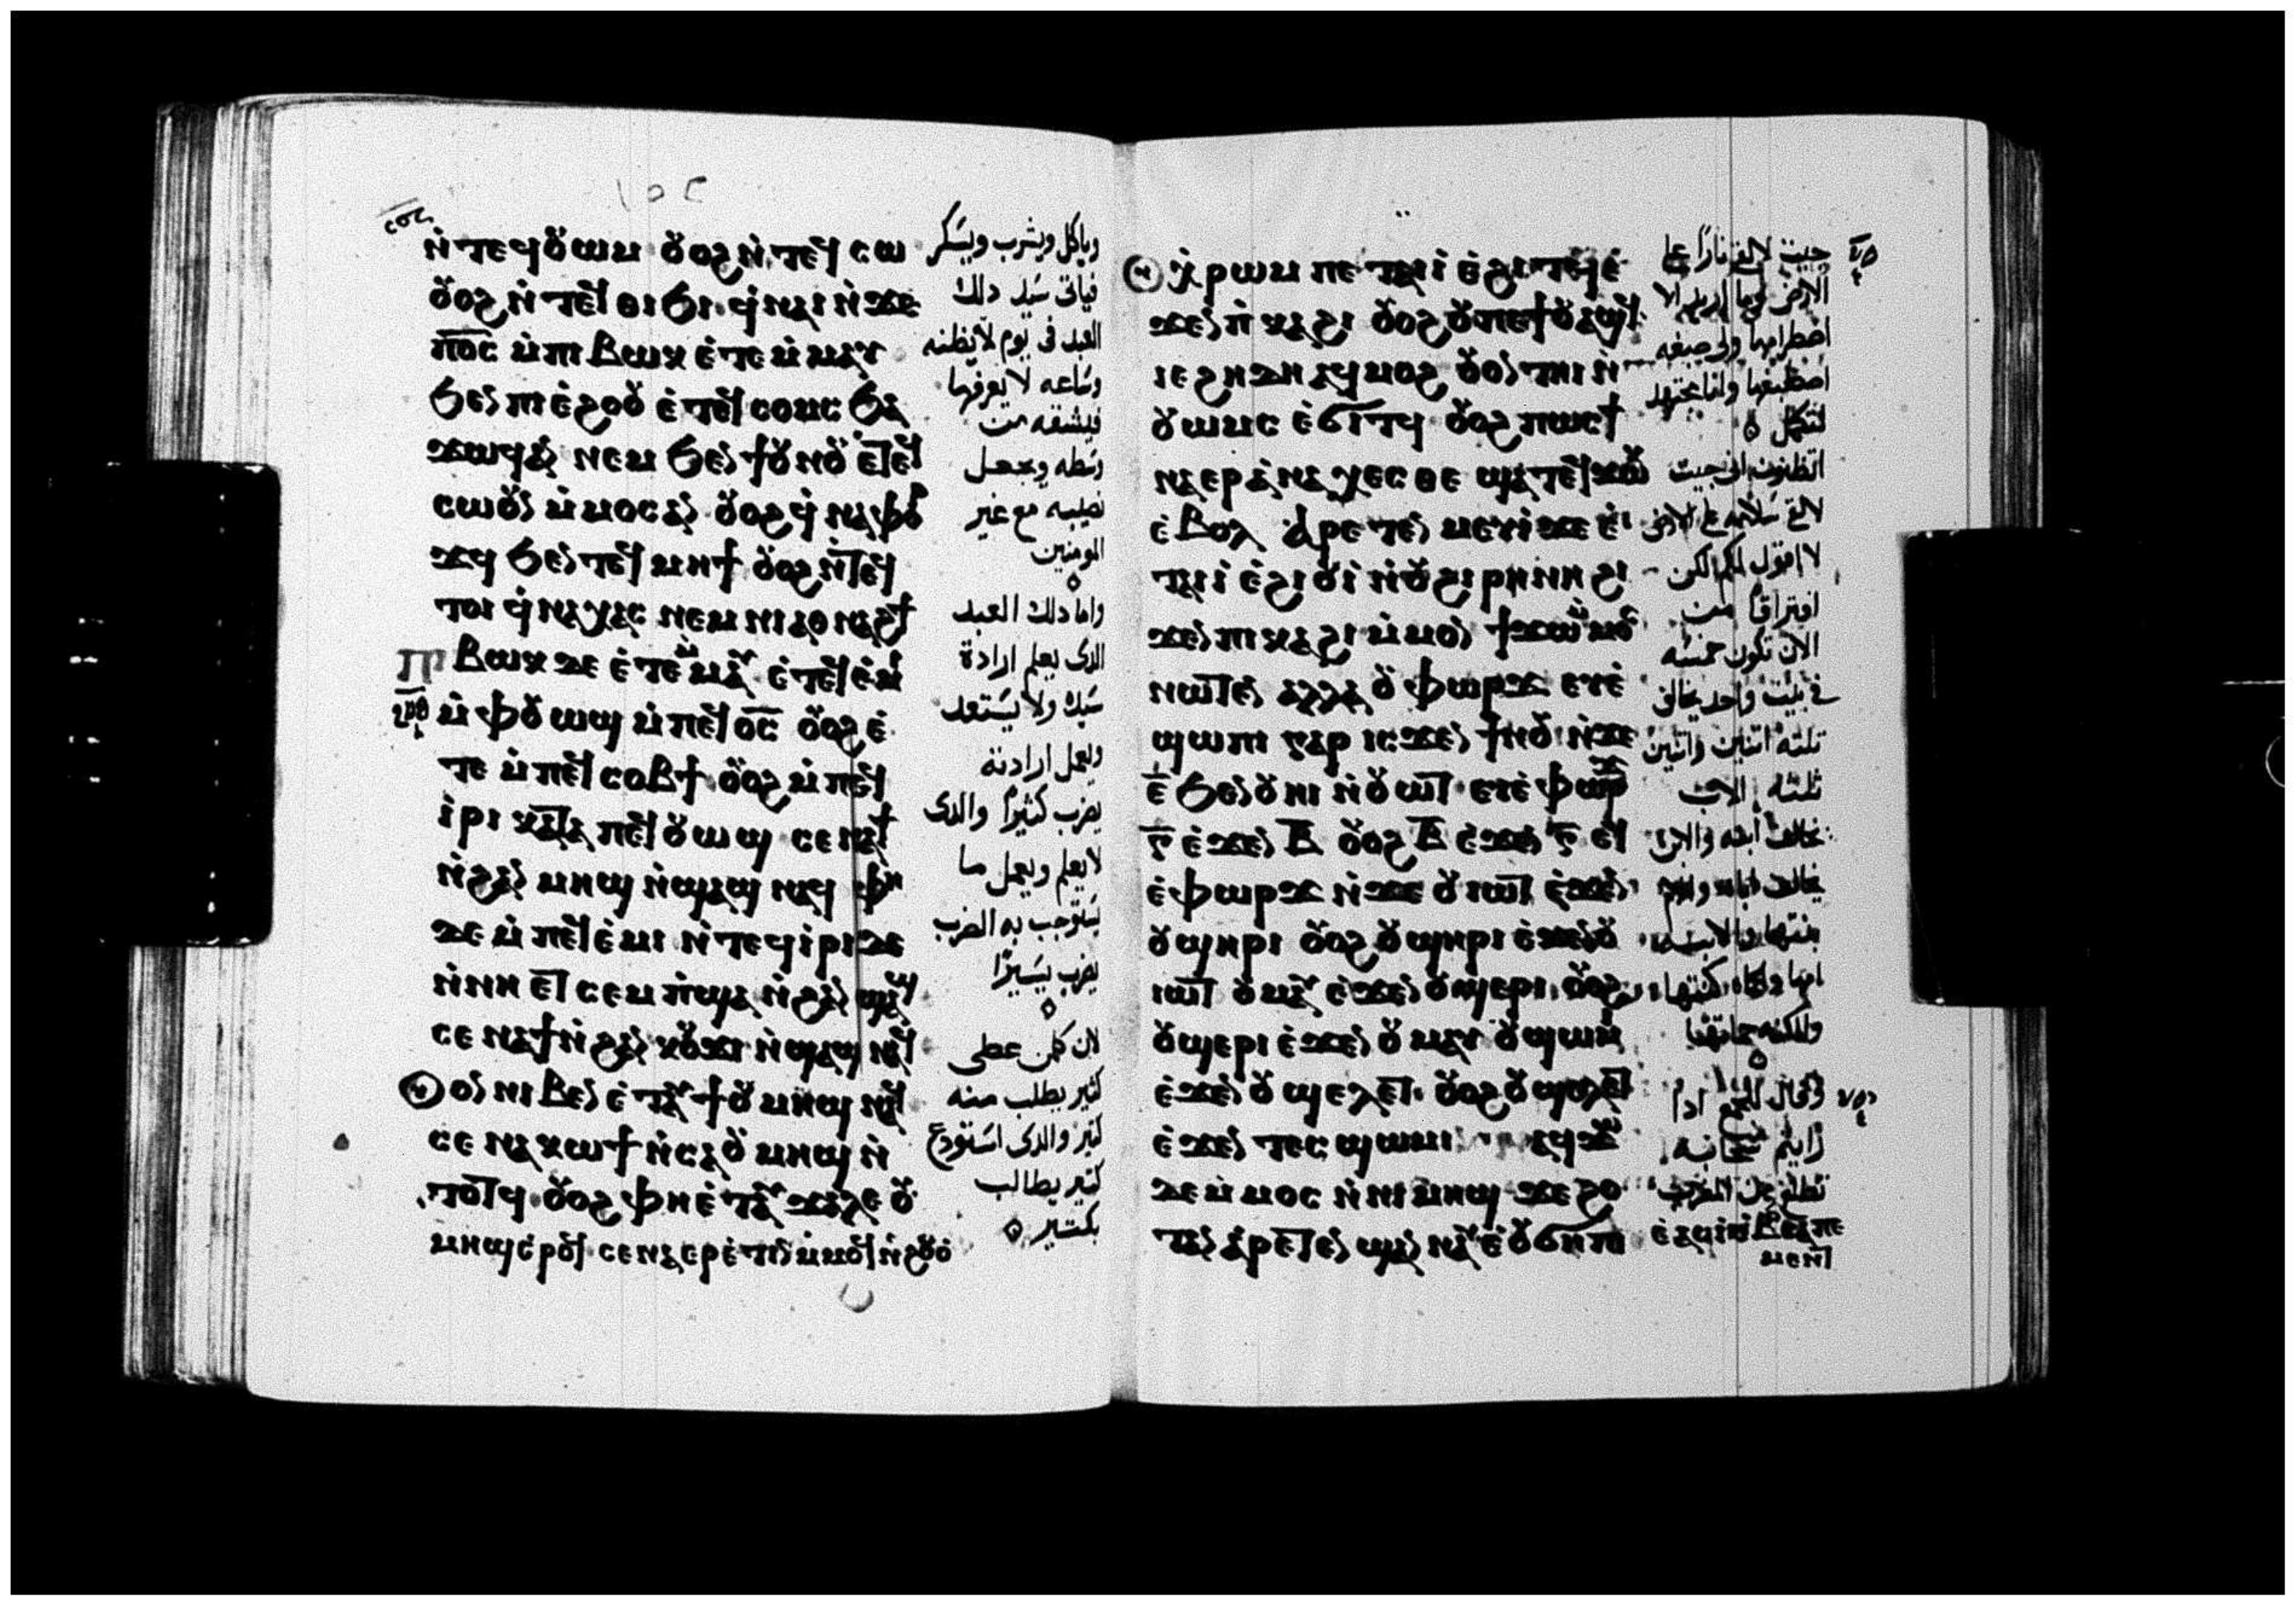 ⲛ̀ⲧⲉϥⲟⲩⲱⲙ ⲟⲩⲟϩ ⲛ̀ⲧⲉϥⲥⲱ
ⲟⲩⲟϩ ⲛ̀ⲧⲉϥⲑⲓϧⲓ ϥ̀ⲛⲁⲓ ⲛ̀ϫⲉ
ⲡϭⲥ ⲙ̀ⲡⲓⲃⲱⲕ ⲉ̀ⲧⲉⲙ̀ⲙⲁⲩ
ϧⲉⲛ ⲡⲓⲉ̀ϩⲟⲟⲩ ⲉ̀ⲧⲉϥⲥⲟⲙⲥ ϧⲁ
ϫⲱϥ ⲁⲛ ⲛⲉⲙ ϧⲉⲛ ϯⲟⲩⲛⲟⲩ ⲉⲧⲉϥ
ⲥⲱⲟⲩⲛ ⲙ̀ⲙⲟⲥ ⲁⲛ ⲟⲩⲟϩ ϥ̀ⲛⲁⲫⲟ
ϫϥ ϧⲉⲛ ⲧⲉϥⲙⲏϯ ⲟⲩⲟϩ ⲛ̀ⲧⲉϥ
ⲧⲟⲓ ϥ̀ⲛⲁⲭⲁⲥ ⲛⲉⲙ ⲛⲓⲁⲑⲛⲁϩϯ
ⲡⲓⲃⲱⲕ ⲇⲉ ⲉ̀ⲧⲉⲙ̀ⲙⲁⲩ ⲉ̀ⲧⲉϥⲉ̀ⲙⲓ
ⲙ̀ⲫⲟⲩⲱϣ ⲙ̀ⲡⲉϥϭⲥ ⲟⲩⲟϩ ⲉ̀
ⲧⲉ ⲙ̀ⲡⲉϥⲥⲟⲃϯ ⲟⲩⲟϩ ⲙ̀ⲡⲉϥ
ⲓ̀ⲣⲓ ⲕⲁⲧⲁ ⲡⲉϥⲟⲩⲱϣ ⲥⲉⲛⲁϯ
ⲛ̀ϩⲁⲛ ⲙⲏϣ ⲛ̀ϣⲁϣ ⲛⲁϥ ⲫⲏ
ⲇⲉ ⲙ̀ⲡⲉϥⲉ̀ⲙⲓ ⲛ̀ⲧⲉϥⲓ̀ⲣⲓ ⲇⲉ
ⲛ̀ⲛⲏ ⲉⲧ ⲥⲉⲙⲡ̀ϣⲁ ⲛ̀ϩⲁⲛ ϣⲁϣ
ⲥⲉⲛⲁϯ ⲛ̀ϩⲁⲛ ⲕⲟⲩϫⲓ ⲛ̀ϣⲁϣ ⲛⲁϥ
ⲟⲩⲟⲛ ⲛⲓⲃⲉⲛ ⲉ̀ⲧⲁⲩϯ ⲟⲩⲙⲏϣ ⲛⲁϥ
ⲥⲉⲛⲁⲕⲱϯ ⲛ̀ⲥⲁ ⲟⲩⲙⲏϣ ⲛ̀
ⲧⲟⲧϥ ⲟⲩⲟϩ ⲫⲏ ⲉ̀ⲧⲁⲩⲭⲁⲗⲉ ⲟⲩ
ⲙⲏϣ ⲉ̀ⲣⲟϥ ⲥⲉⲛⲁⲉⲣⲉ̀ⲧⲓⲛ ⲙ̀ⲙⲟϥ ⲛ̀ϩⲟⲩⲟ̀
وياكل ويشرب ويسكر
فياتى سيد دلك
العبد فى يوم لا يظنه
وساعه لا يعرفها
فيشقه من
وسطه ويجعل
نصيبه مع غير
المومنين
واما دلك العبد
الدى يعلم ارادة
سيده ولا يستعد
ويعمل ارادته
يضرب كثيرا والدى
لا يعلم ويعمل ما
يستوجب به الضرب
يضرب يسيرا
لان كلمن عطى
كثير يطلب منه
كثير والدى استودع
كثير يطالب
بكثير
ⲭ̀ⲣⲱⲙ ⲡⲉ ⲧⲁⲓⲓ̀ ⲉ̀ϩⲓⲧϥ ⲉ̀
ϫⲉⲛ ⲡ̀ⲕⲁϩⲓ ⲟⲩⲟϩ ⲟⲩ ⲡⲉϯⲟⲩⲁϣϥ
ⲓⲉ ϩⲏⲇⲏ ⲁϥⲙⲟϩ ⲟⲩⲟⲛⲧⲏⲓ ⲛ̀
ⲟⲩⲱⲙⲥ ⲉ̀ϭⲓⲧϥ ⲟⲩⲟϩ ⲡⲱⲥ ϯ
ⲛⲁⲉⲣⲁ̀ⲛⲁⲭⲉⲥⲑⲉ ϣⲁⲧⲉϥϫⲱⲕ
ⲉ̀ⲃⲟⲗ ⲁⲣⲉⲧⲉⲛ ⲙⲉⲩⲓ̀ ϫⲉ ⲉ̀
ⲧⲁⲓⲓ̀ ⲉ̀ϩⲓⲟⲩⲓ̀ ⲛ̀ⲟⲩϩⲓⲣⲏⲛⲏ ϩⲓ
ϫⲉⲛ ⲡⲓⲕⲁϩⲓ ⲙ̀ⲙⲟⲛ ϯϫⲱ ⲙ̀ⲙⲟⲥ
ⲛⲱⲧⲉⲛ ⲁⲗⲗⲁ ⲟⲩⲫⲱⲣϫ ⲉⲩⲉ̀
ϣⲱⲡⲓ ⲅⲁⲣ ⲓⲥϫⲉⲛ ϯⲛⲟⲩ ⲛ̀ϫⲉ
ⲉ̅ ϧⲉⲛ ⲟⲩⲏⲓ ⲛ̀ⲟⲩⲱⲧ ⲉⲩⲉ̀ⲫⲱⲣϫ
ⲅ̅ ⲉ̀ϫⲉⲛ ⲃ̅ ⲟⲩⲟϩ ⲃ̅ ⲉ̀ϫⲉⲛ ⲅ̅ ⲉⲩ
ⲉ̀ⲫⲱⲣϫ ⲛ̀ϫⲉ ⲟⲩⲓⲱⲧ ⲉ̀ϫⲉⲛ
ⲟⲩϣⲏⲣⲓ ⲟⲩⲟϩ ⲟⲩϣⲏⲣⲓ ⲉ̀ϫⲉⲛ ⲟⲩ
ⲓⲱⲧ ⲟⲩⲙⲁⲩ ⲉ̀ϫⲉⲛ ⲟⲩϣⲉⲣⲓ ⲟⲩⲟϩ
ⲟⲩϣⲉⲣⲓ ⲉ̀ϫⲉⲛ ⲟⲩⲙⲁⲩ ⲟⲩϣⲱⲙⲓ
ⲉ̀ϫⲉⲛ ⲟⲩϣⲉⲗⲉⲧ ⲟⲩⲟϩ ⲟⲩϣⲉⲗⲉⲧ
ⲉ̀ϫⲉⲛ ⲧⲉⲥϣⲱⲙⲓ ⲛⲁϥϫⲱ
ⲇⲉ ⲙ̀ⲙⲟⲥ ⲛ̀ⲛⲓⲙⲏϣ ϫⲉ ϩⲟ
ⲧⲁⲛ ⲁ̀ⲣⲉⲧⲉⲛ ϣⲁⲛⲛⲁⲩ ⲉ̀ⲟⲩϭⲏⲡⲓ
جيت لالقى نارا على
الارض وما اريد الا
اضطرامها ولى صبغه
اصطبغها وانا مجتهد
لتكمل
اتظنون انى جيت
لالقى سلامه على الارض
لا اقول لكم لكن
افتراقا من
الان تكون خمسه
فى بيت واحد يخالف
ثلثه اتنين واتنين
ثلثه الاب
يخالف ابنه والابن
يخالف اباه والام
بنتها والابنه
امها والحماه كنتها
والكنه حماتها
وقال للجمع ادا
رايتم سحابه
تطلع من المغرب